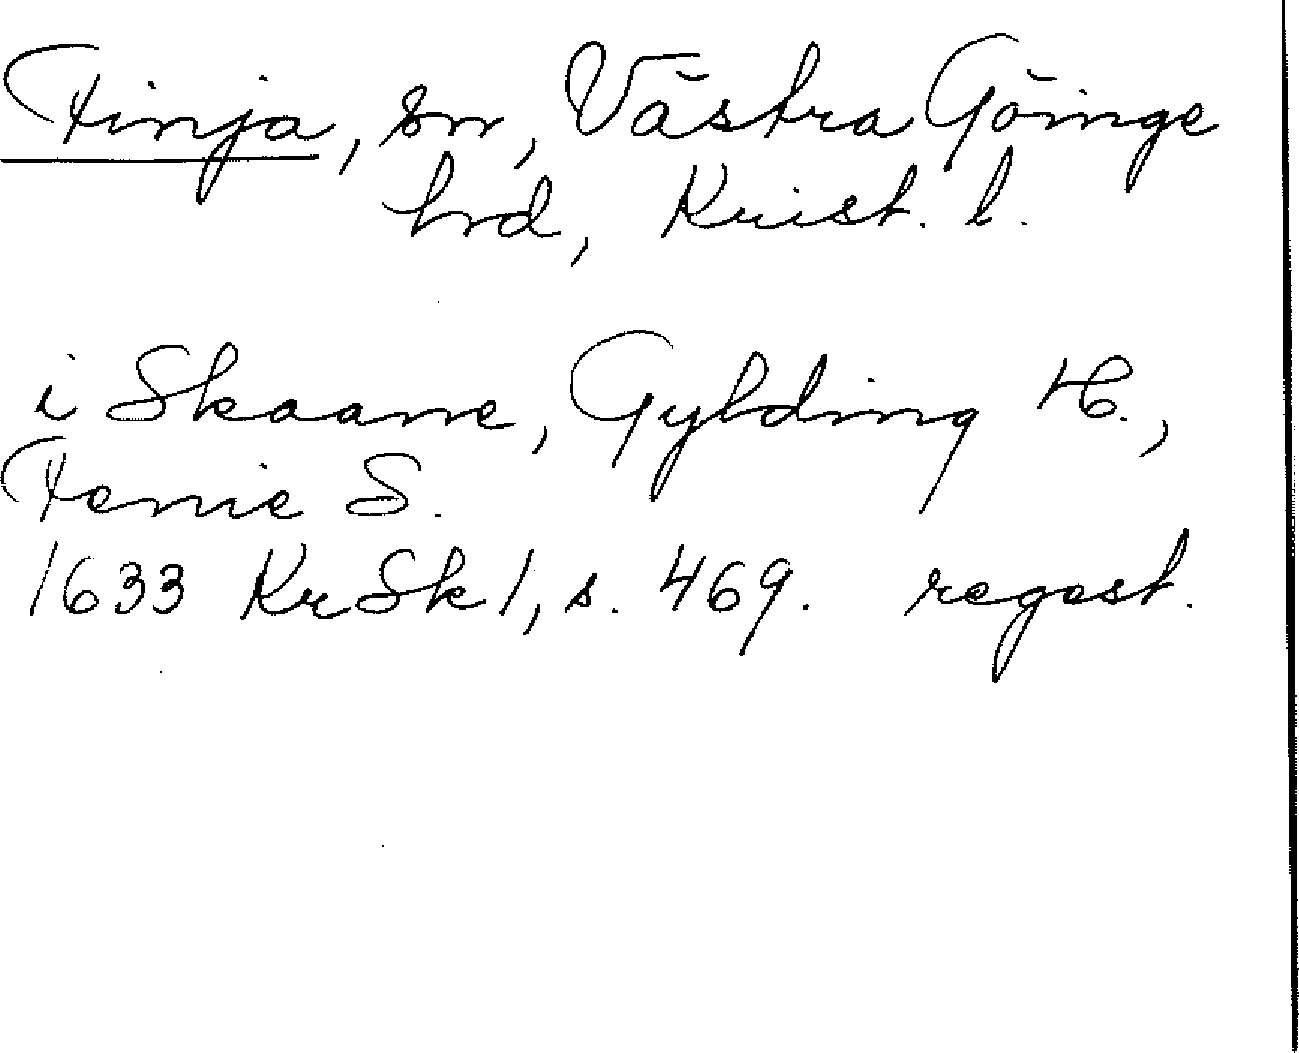 Finja, sn, Västra Göinge
hrd, Krist. l.
i Skaane, Gylding H.,
Fenie S.
1633 KrSk 1, s. 469. regest.